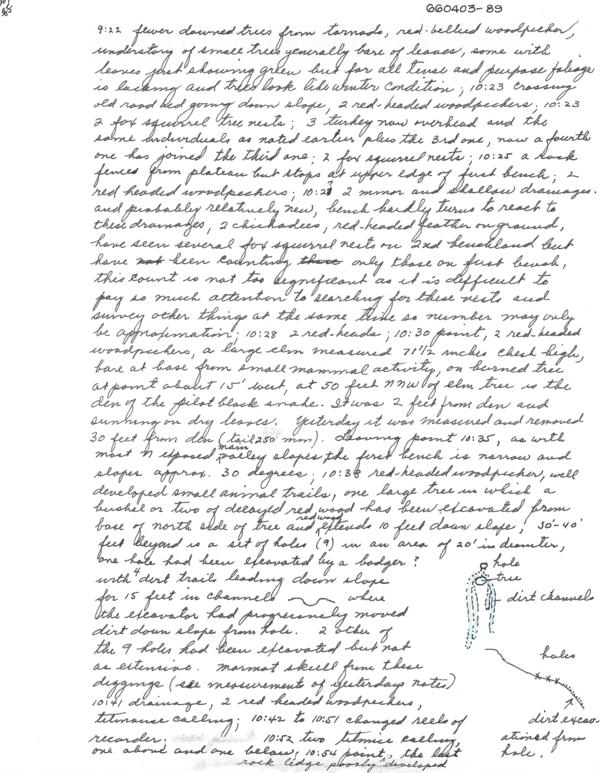 660403-89
9:22 fewer downed trees from tornado, red-bellied woodpecker,
understory of small trees generally bare of leaves, some with
leaves just showing green but for all tense and purpose foliage
is lacking and trees look like winter condition; 10:23 crossing
old road bed going down slope, 2 red-headed woodpeckers; 10:23
2 fox squirrel tree nests; 3 turkey now overhead and the
same individuals as noted earlier plus the 3rd one, now a fourth
one has joined the third one; 2 fox squirrel nests; 10:25 a rock
fence from plateau but stops at upper edge of first bench; 2
red headed woodpeckers; 10:27 2 minor and shallow drainages.
and probably relatively new, bench hardly turns to react to
these drainages, 2 chickadees, red-headed feather on ground,
have seen several fox squirrel nests on 2nd benchland but
have not been counting these only those on first bench,
this count is not too significant as it is difficult to
pay so much attention to searching for these nests and
survey other things at the same time so number may only
be approximation; 10:28 2 red-heads; 10:30 point, 2 red-headed
woodpeckers, a large elm measured 71 1/2 inches chest high,
bare at base from small mammal activity, on burned tree
at point about 15' west, at 50 feet NNW of elm tree is the
den of the pilot black snake. It was 2 feet from den and
sunning on dry leaves. Yesterday it was measured and removed
30 feet from den (tail 250 mm). Leaving point 10:35, as with
most N exposed main valley slopes the first bench is narrow and
slopes approx. 30 degrees; 10:38 red-headed woodpecker, well
developed small animal trails, one large tree in which a
bushel or two of decayed red wood has been excavated from
base of north side of tree and red wood extends 10 feet down slope; 30'-40'
feet beyond is a set of holes (9) in an area of 20' in diameter,
one hole had been excavated by a badger?
with 4 dirt trails leading down slope
for 15 feet in channels where
the excavator had progressively moved
dirt down slope from hole. 2 other of
the 9 holes had been excavated but not
as extensive. marmot skull from these
diggings (see measurements of yesterdays notes)
10:41 drainage, 2 red headed woodpeckers,
titmouse calling; 10:42 to 10:51 changed reels of
recorder. 10:52 two titmice calling,
one above and one below; 10:54 point, the last
rock ledge poorly developed
hole
tree
dirt channels
holes
dirt excav-
ationed from
hole.